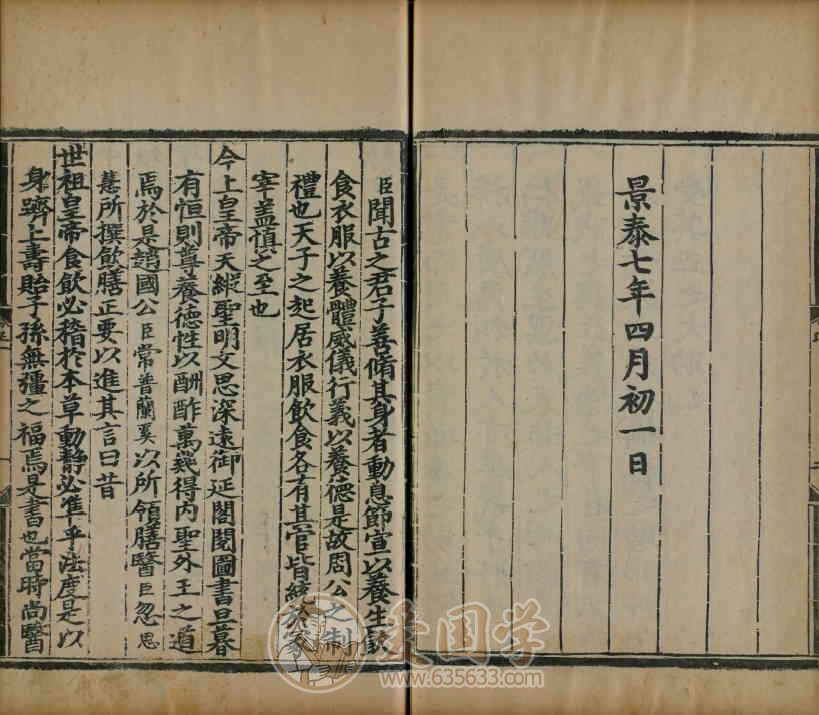 景泰七年四月初一日
臣聞古之君子善脩其身者動息節宣以養生飲
食衣服以養體威儀行義以養德是故周公之制
禮也天子之起居衣服飲食各有其官皆統於冢
宰盖慎之至也
今上皇帝天縱聖明文思深遠御延閣閱圖書旦暮
有恒則尊養德性以酬酢萬幾得内聖外王之道
焉於是趙國公臣常普蘭奚以所領膳醫臣忽思
慧所撰飲膳正要以進其言曰昔
世祖皇帝食飲必稽於本草動靜必準乎法度是以
身躋上壽貽子孫無疆之福焉是書也當時尚醫
国学
www.635633.com